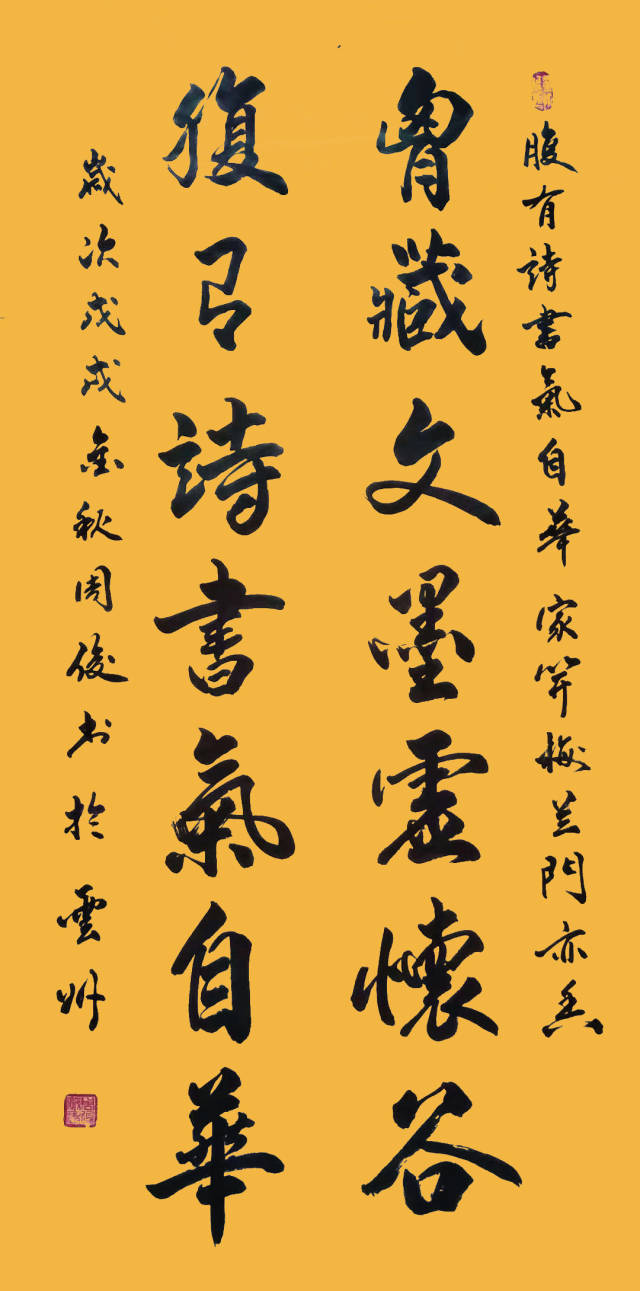 腹有詩書氣自華家梅兰門亦香
胷藏文墨虛懷谷
復有詩書氣自華
歲次戊戌金秋周俊书於雲州